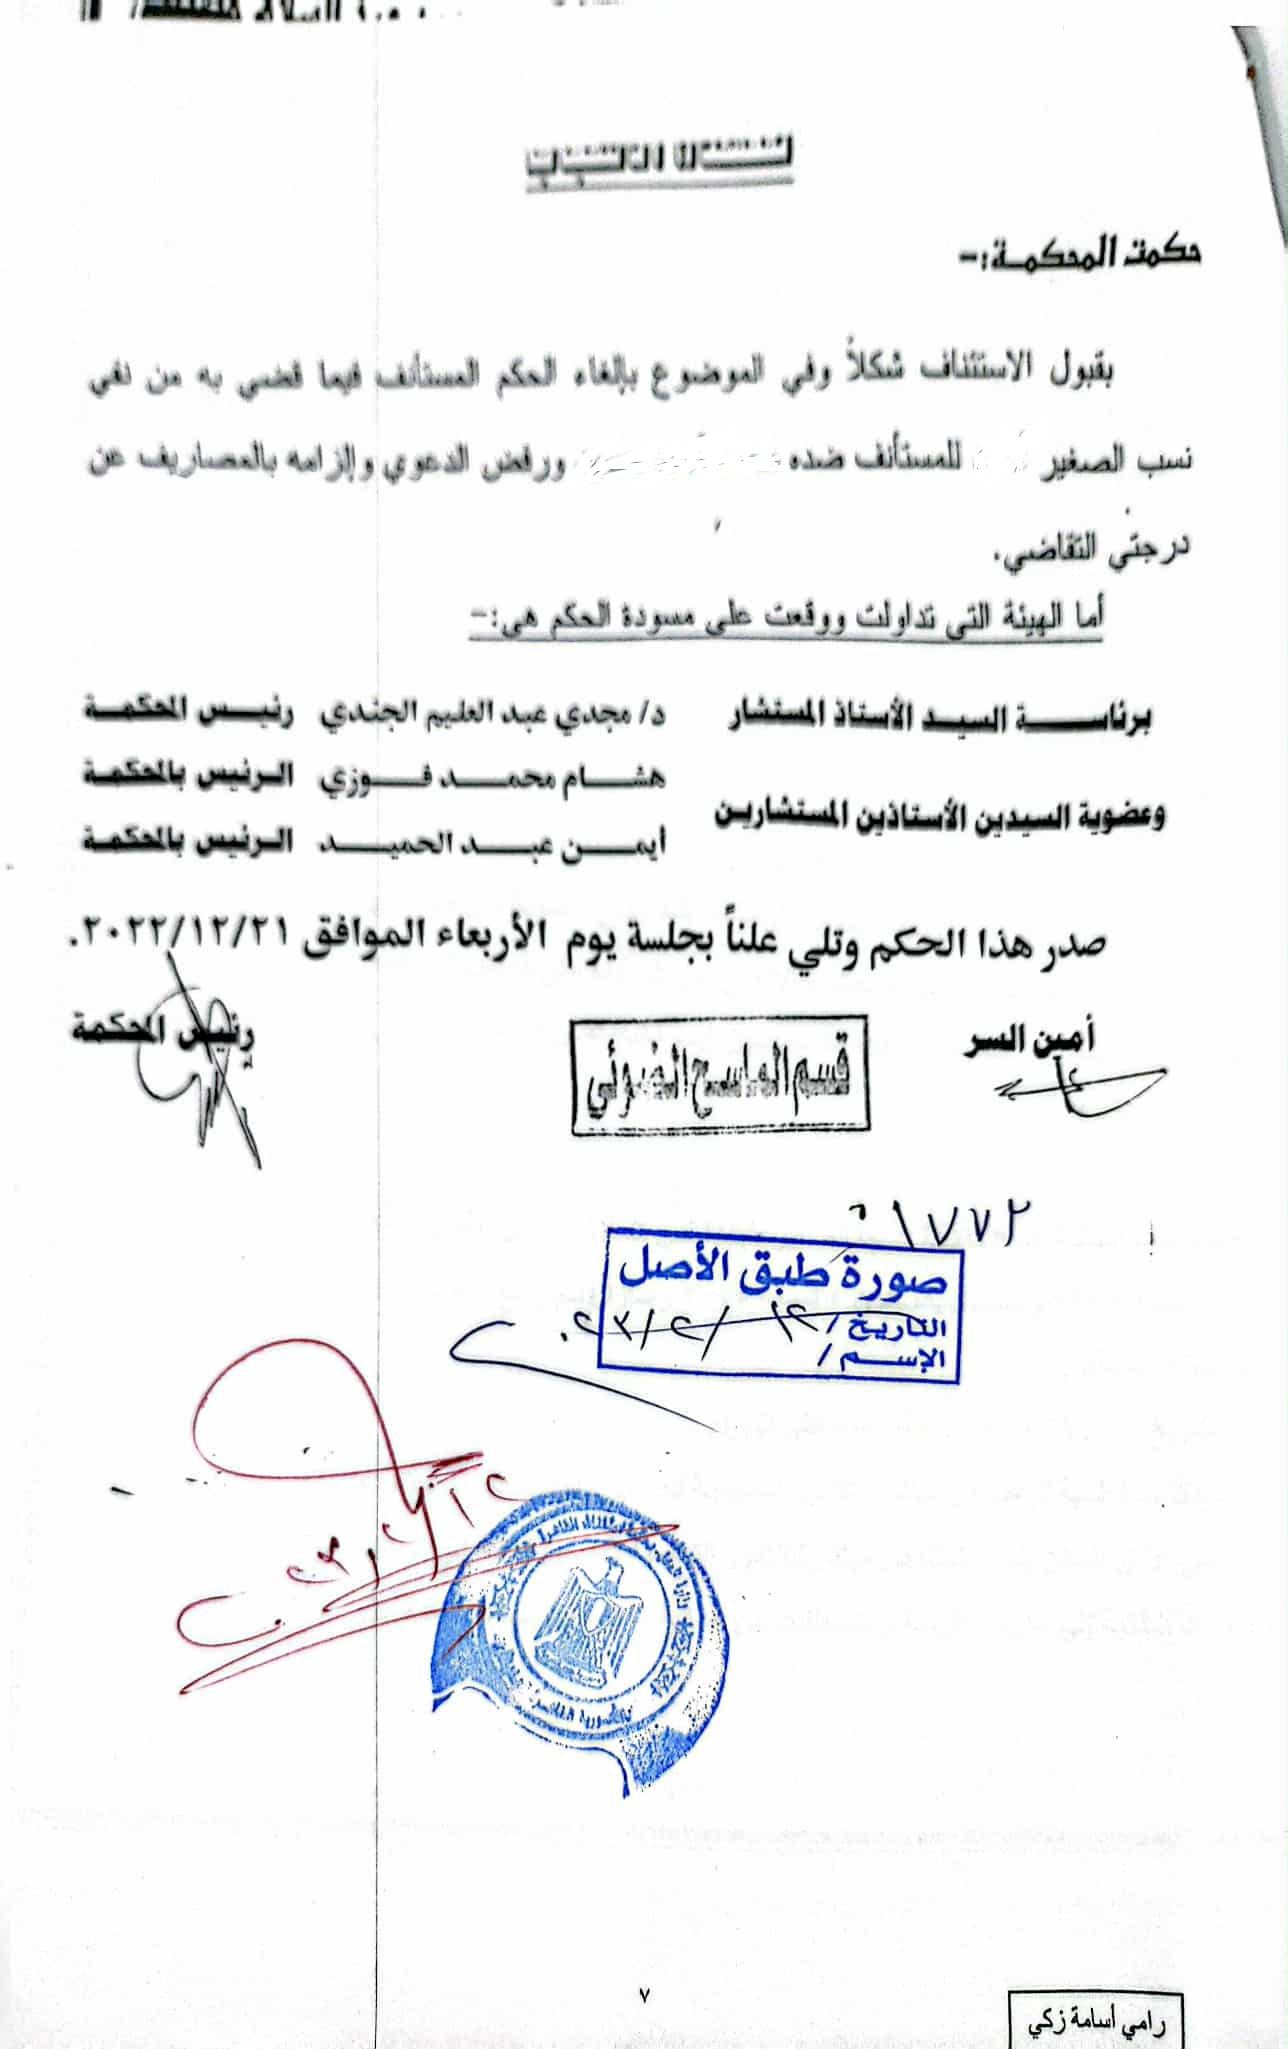 فلهذه الأسباب
حكمت المحكمة:-
بقبول الاستئناف شكلاً وفي الموضوع بإلغاء الحكم المستأنف فيما قضي به من نفي
نسب الصغير للمستأنف ضده ورفض الدعوي وإلزامه بالمصاريف عن
درجتي التقاضي.
أما الهيئة التى تداولت ووقعت على مسودة الحكم هى:-
برئاسة السيد الأستاذ المستشار د/ مجدي عبد العليم الجندي رئيس المحكمة
هشام محمد فوزي الرئيس بالمحكمة
وعضوية السيدين الأستاذين المستشارين
أيمن عبد الحميد الرئيس بالمحكمة
صدر هذا الحكم وتلي علناً بجلسة يوم الأربعاء الموافق ٢٠٢٢/١٢/٢١.
أمين السر رئيس المحكمة
قسم الماسح الضوئي
١٧٧٢
صورة طبق الأصل
التاريخ / ١٢ / ٢ / ٢٠٢٣
الإسم /
٧
رامي أسامة زكي